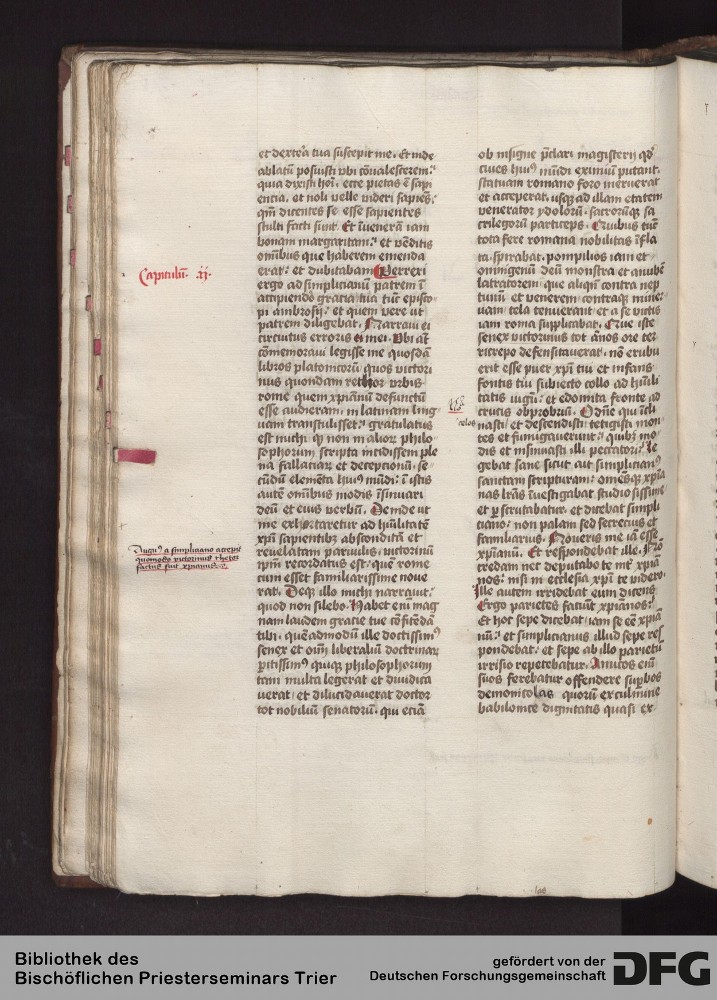 et dextera tua suscepit me. Et inde
ablatū posuisti vbi cōualescerem:
quia dixisti hoī. ecce pietas ē sapi
encia. et noli velle videri sapiēs.
qm̄ dicentes se esse sapientes
stulti facti sunt. Et īuenerā iam
bonam margaritam: et vēditis
omībus que haberem emenda
erat: et dubitabam Perrexi
ergo ad simplicianū patrem ī
accipiendo gratia tua tūc episco
pi ambrosij: et quem vere ut
patrem diligebat. Narraui ei
circuitus erroris mei. Vbi aūt
cōmemoraui legisse me quosdā
libros platonicorū quos victori
nus quondam rethor vrbis
rome quem xp̄ianū defunctū
esse audieram. in latinam ling
uam transtulisset: gratulatus
est michi qꝫ non in alioꝝ philo
sophorum scripta incidissem ple
na fallaciaꝝ et deceptionū. se
cūdū elemēta huiꝰ mūdi: ī istis
autē omībus modis īsinuari
deū et eius verbū. Deinde ut
me exhortaretur ad hūilitatē
xp̄i sapientibꝫ absconditā et
reuelatam paruulis. victorinū
ip̄m recordatus est. quē rome
cum esset familiarissime noue
rat. Deqꝫ illo michi narrauit.
quod non silebo. Habet eni mag
nam laudem gracie tue cōfitēdā
tibi. quēadmodū ille doctissimꝰ
senex et oīm liberaliū doctrinaꝝ
p̱itissimꝰ quiqꝫ philosophorum
tam multa legerat et diiudica
uerat et dilucidauerat doctor
tot nobiliū senatorū. qui eciā
Capitulū xj.
Augꝰ a simpliciano accepit
quomodo victorinus rhetor
factus fuit xpianus
ob insigne p̄clari magisterij qd̄
ciues huiꝰ mūdi eximiū putant.
statuam romano foro meruerat
et acceperat. usqꝫ ad illam etatem
venerator ydolorū. sacrorūqꝫ sa
crilegorū particeps. Quibus tūc
tota fere romana nobilitas īfla
ta spirabat. pompilios iam et
omnigenū deū monstra et anubē
latratorem. que aliqn̄ contra nep
tunū et venerem contraqꝫ miner
uam tela tenuerant. et a se victis
iam roma supplicabat. Que iste
senex victorinus tot ānos ore ter
ricrepo defensitauerat. nō erubu
erit esse puer xp̄i tui et infans
fontis tui subiecto collo ad hūili
tatis iugū: et edomita fronte ad
crucis obprobriū. O dn̄e qui īcli
nasti et descendisti tetigisti mon
tes et fumigauerunt: quibꝫ mo
dis et insinuasti illi peccatori: le
gebat sane sicut ait simplicianꝰ
sanctam scripturam: omēsqꝫ xp̄ia
nas lr̄as īuestigabat studiosissime
et p̱scrutabatur. et dicebat simpli
ciano: non palam sed secretius et
familiarius. Noueris me iā esse
xp̄ianū. Et respondebat ille. Nō
credam nec deputabo te int̄ xp̄ia
nos: nisi in ecclesia xp̄i te videro.
Ille autem irridebat eum dicens
Ergo parietes faciūt xp̄ianos:
Et hoc sepe dicebat iam se eē xp̄ia
nū: et simplicianus illud sepe res
pondebat. et sepe ab illo parietū
irrisio repetebatur. Amicos eni
suos ferebatur offendere sup̱bos
demonicolas quorū ex culmine
babilonice dignitatis quasi ex
celos
Bibliothek des
Bischöflichen Priesterseminars Trier
gefördert von der
Deutschen Forschungsgemeinschaft
DFG